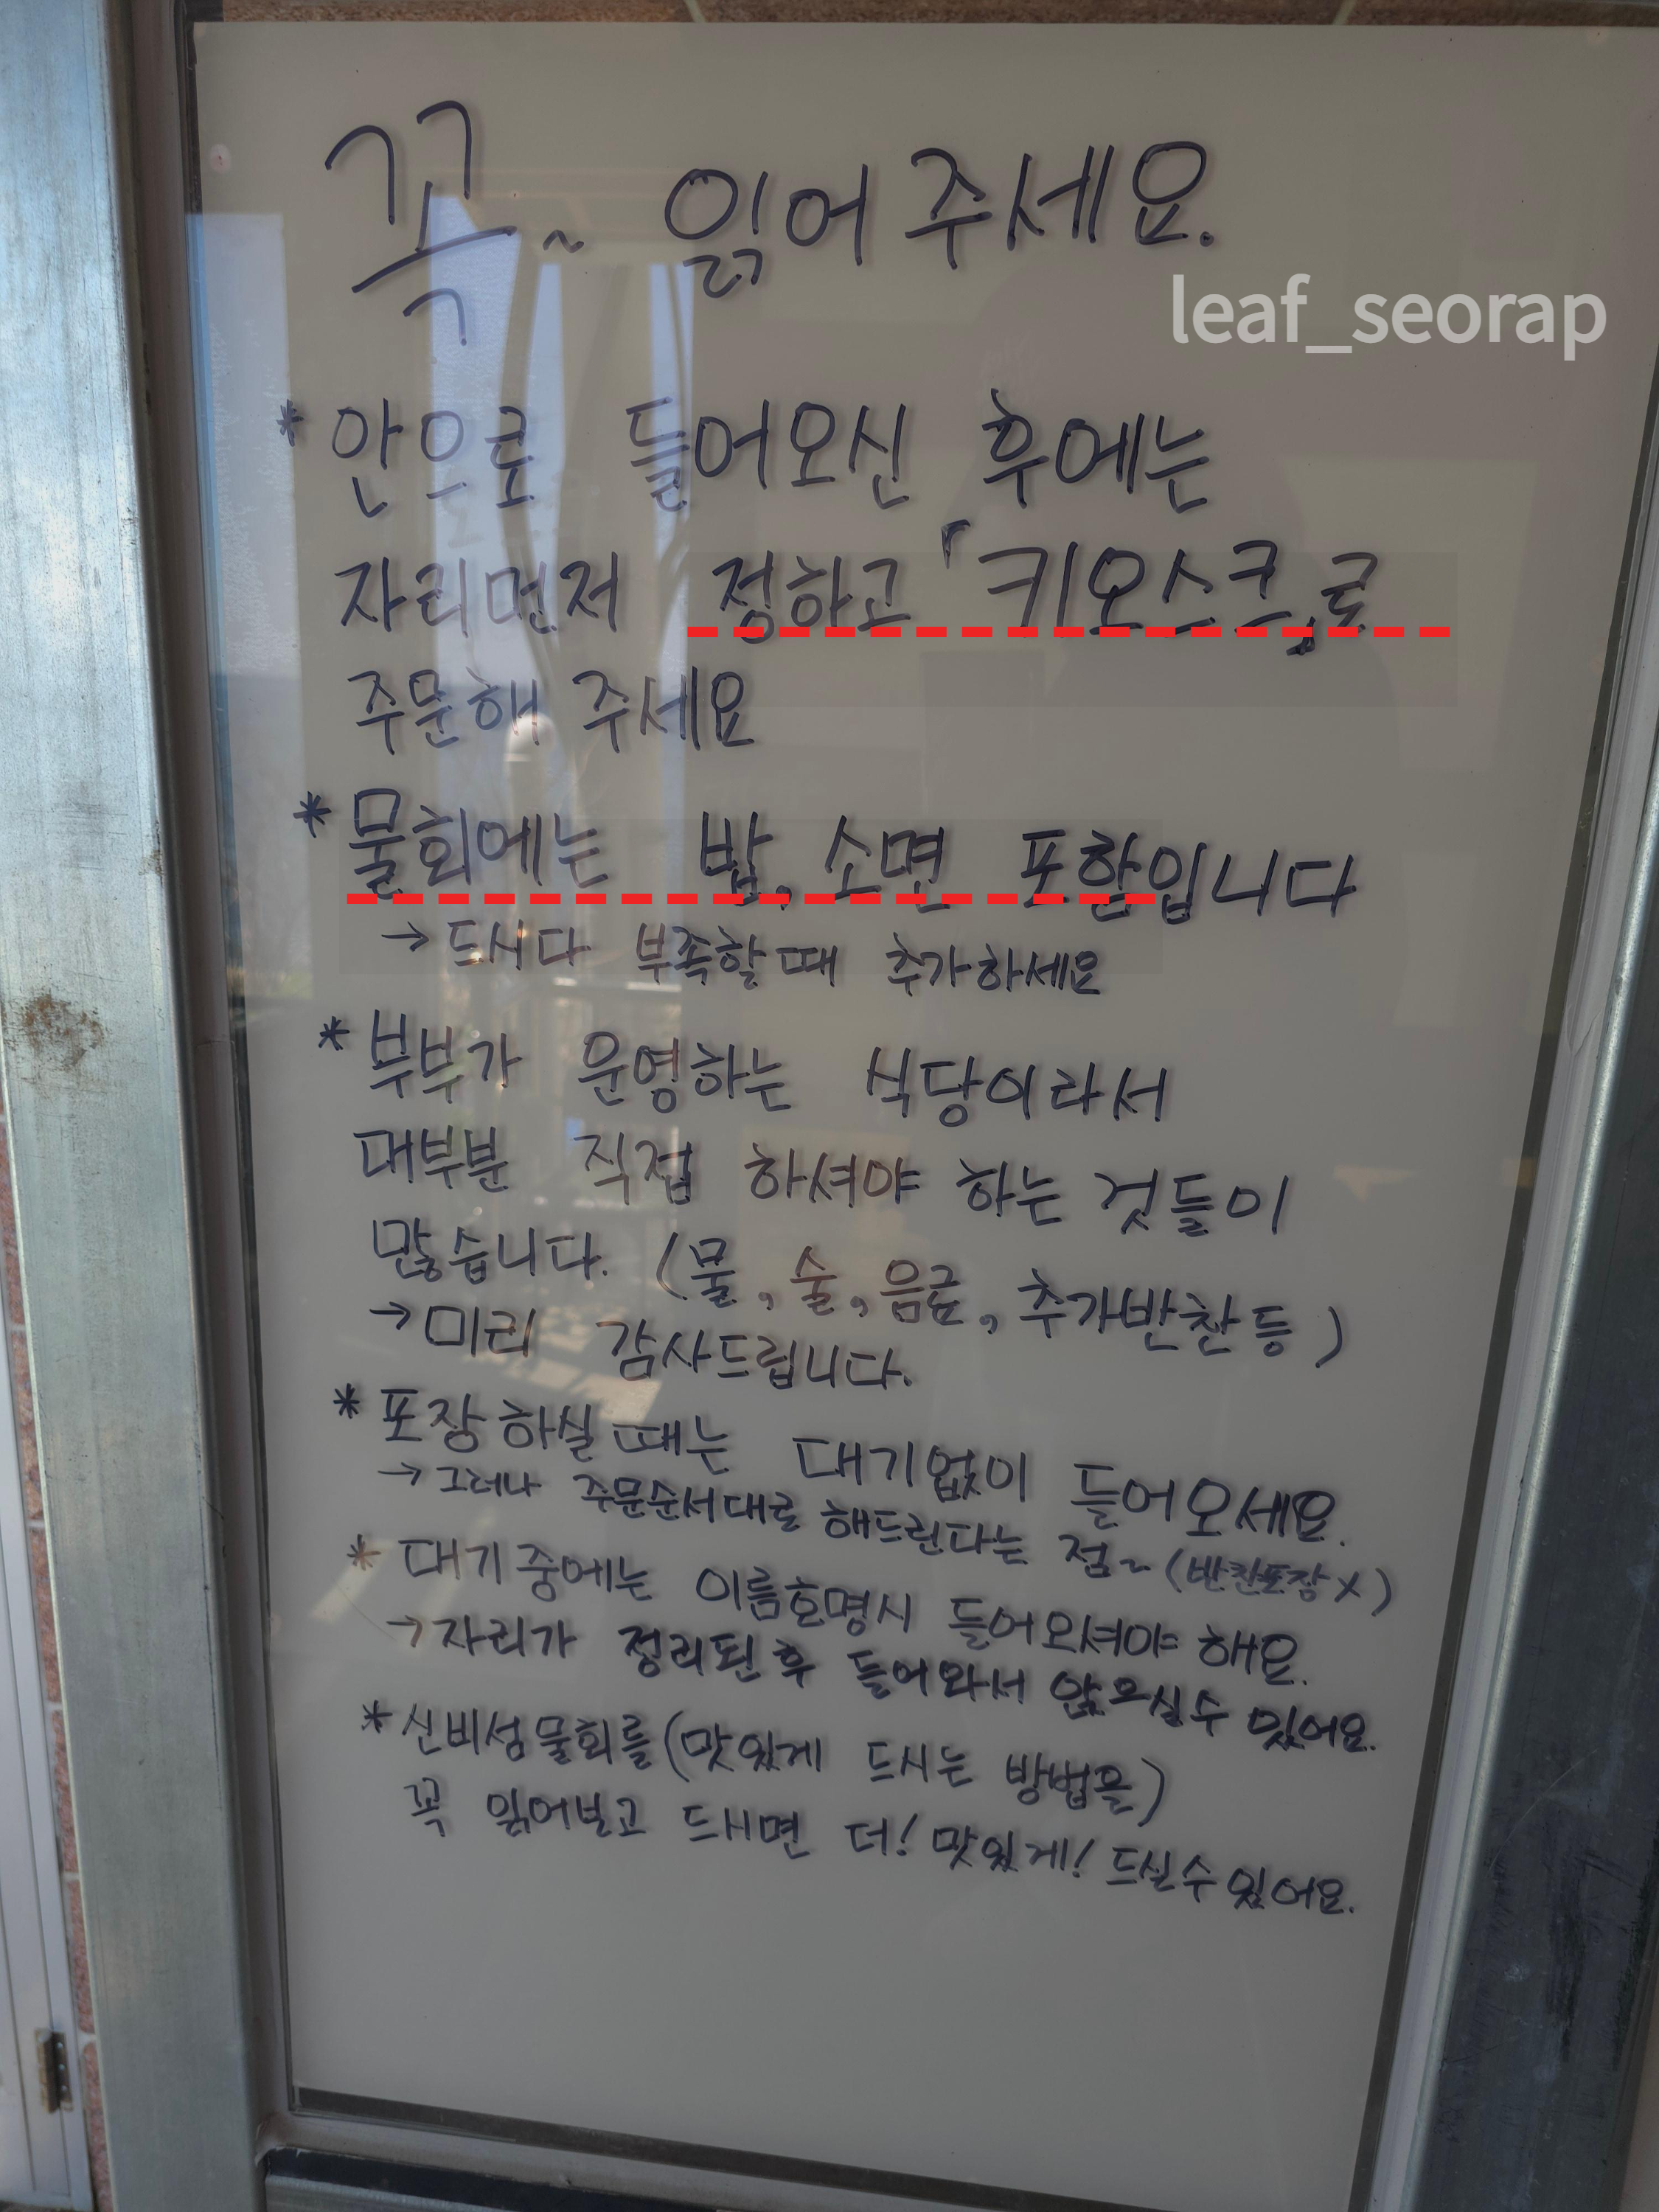 꼭~ 읽어 주세요.
leaf_seorap
* 안으로 들어오신 후에는
자리먼저 정하고 「키오스크」로
주문해 주세요
* 물회에는 밥, 소면 포함입니다
→ 드시다 부족할때 추가하세요
* 부부가 운영하는 식당이라서
대부분 직접 하셔야 하는 것들이
많습니다. (물, 술, 음료, 추가반찬 등)
→ 미리 감사드립니다.
* 포장 하실때는 대기없이 들어오세요.
→ 그러나 주문순서대로 해드린다는 점~ (반찬포장 X)
* 대기중에는 이름호명시 들어오셔야 해요.
→ 자리가 정리된 후 들어와서 앉으실수 있어요.
* 신비섬물회를 (맛있게 드시는 방법을)
꼭 읽어보고 드시면 더! 맛있게! 드실수 있어요.